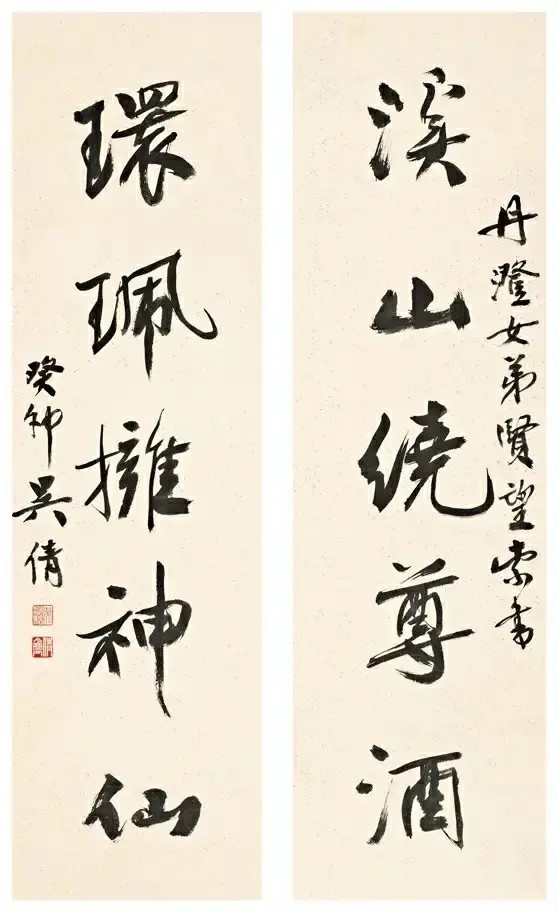 溪山繞尊酒
丹澄女弟賢望索書
環珮擁神仙
癸卯吳倩